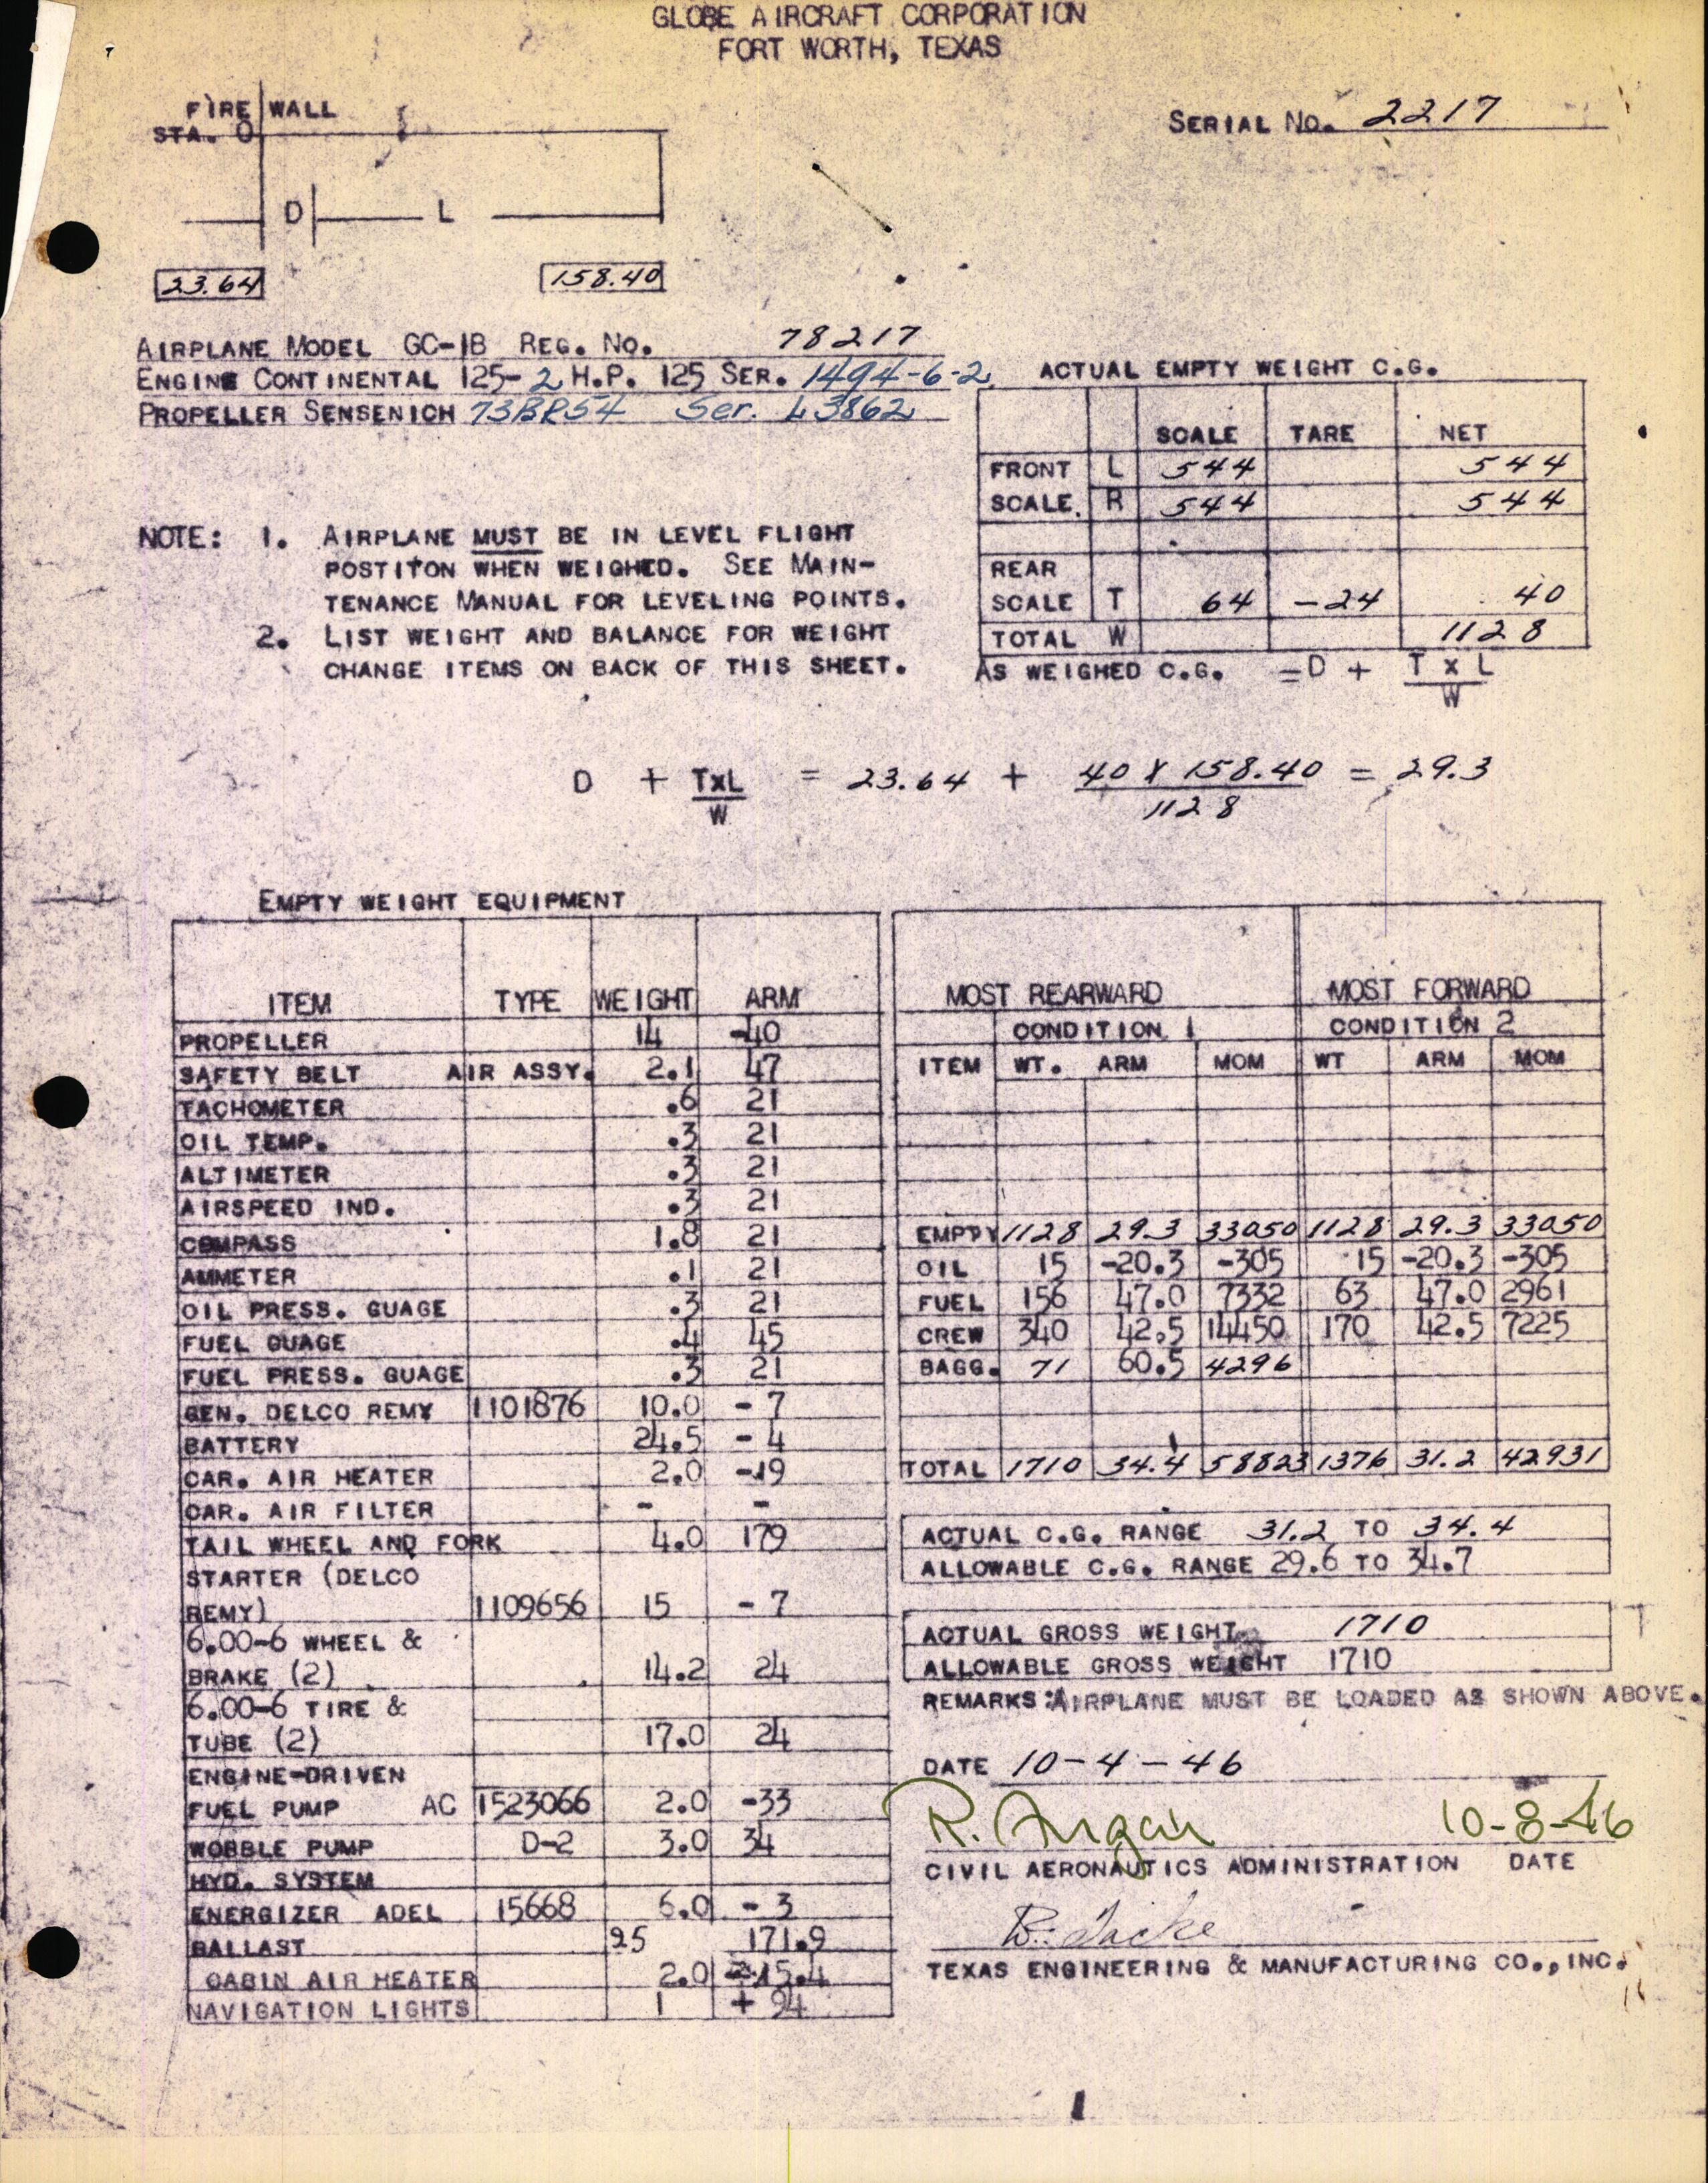 GLOBE AIRCRAFT CORPORATION
FORT WORTH, TEXAS
FIRE WALL
STA. 0
SERIAL NO. 2217
D L
23.64 158.40
AIRPLANE MODEL GC-1B REG. NO. 78217
ENGINE CONTINENTAL 125-2 H.P. 125 SER. 1494-6-2
PROPELLER SENSENICH 73BR54 Ser. L3862
ACTUAL EMPTY WEIGHT C.G.
SCALE TARE NET
FRONT L 544 544
SCALE. R 544 544
REAR
SCALE T 64 -24 40
TOTAL W 1128
AS WEIGHED C.G. =D + T x L
W
NOTE: 1. AIRPLANE MUST BE IN LEVEL FLIGHT
POSTITON WHEN WEIGHED. SEE MAIN-
TENANCE MANUAL FOR LEVELING POINTS.
2. LIST WEIGHT AND BALANCE FOR WEIGHT
CHANGE ITEMS ON BACK OF THIS SHEET.
D + TxL = 23.64 + 40 X 158.40 = 29.3
W 1128
EMPTY WEIGHT EQUIPMENT
ITEM TYPE WEIGHT ARM
PROPELLER 14 -40
SAFETY BELT AIR ASSY. 2.1 47
TACHOMETER .6 21
OIL TEMP. .3 21
ALTIMETER .3 21
AIRSPEED IND. .3 21
COMPASS 1.8 21
AMMETER .1 21
OIL PRESS. GUAGE .3 21
FUEL GUAGE .4 45
FUEL PRESS. GUAGE .3 21
GEN. DELCO REMY 1101876 10.0 - 7
BATTERY 24.5 - 4
CAR. AIR HEATER 2.0 -19
CAR. AIR FILTER - -
TAIL WHEEL AND FORK 4.0 179
STARTER (DELCO
REMY) 1109656 15 - 7
6.00-6 WHEEL &
BRAKE (2) 14.2 24
6.00-6 TIRE &
TUBE (2) 17.0 24
ENGINE-DRIVEN
FUEL PUMP AC 1523066 2.0 -33
WOBBLE PUMP D-2 3.0 34
HYD. SYSTEM
ENERGIZER ADEL 15668 6.0 - 3
BALLAST 25 171.9
CABIN AIR HEATER 2.0 -15.4
NAVIGATION LIGHTS 1 + 94
MOST REARWARD MOST FORWARD
CONDITION 1 CONDITION 2
ITEM WT. ARM MOM WT ARM MOM
EMPTY 1128 29.3 33050 1128 29.3 33050
OIL 15 -20.3 -305 15 -20.3 -305
FUEL 156 47.0 7332 63 47.0 2961
CREW 340 42.5 14450 170 42.5 7225
BAGG. 71 60.5 4296
TOTAL 1710 34.4 58823 1376 31.2 42931
ACTUAL C.G. RANGE 31.2 TO 34.4
ALLOWABLE C.G. RANGE 29.6 TO 34.7
ACTUAL GROSS WEIGHT 1710
ALLOWABLE GROSS WEIGHT 1710
REMARKS: AIRPLANE MUST BE LOADED AS SHOWN ABOVE.
DATE 10-4-46
R. 10-8-46
CIVIL AERONAUTICS ADMINISTRATION DATE
B.
TEXAS ENGINEERING & MANUFACTURING CO., INC.